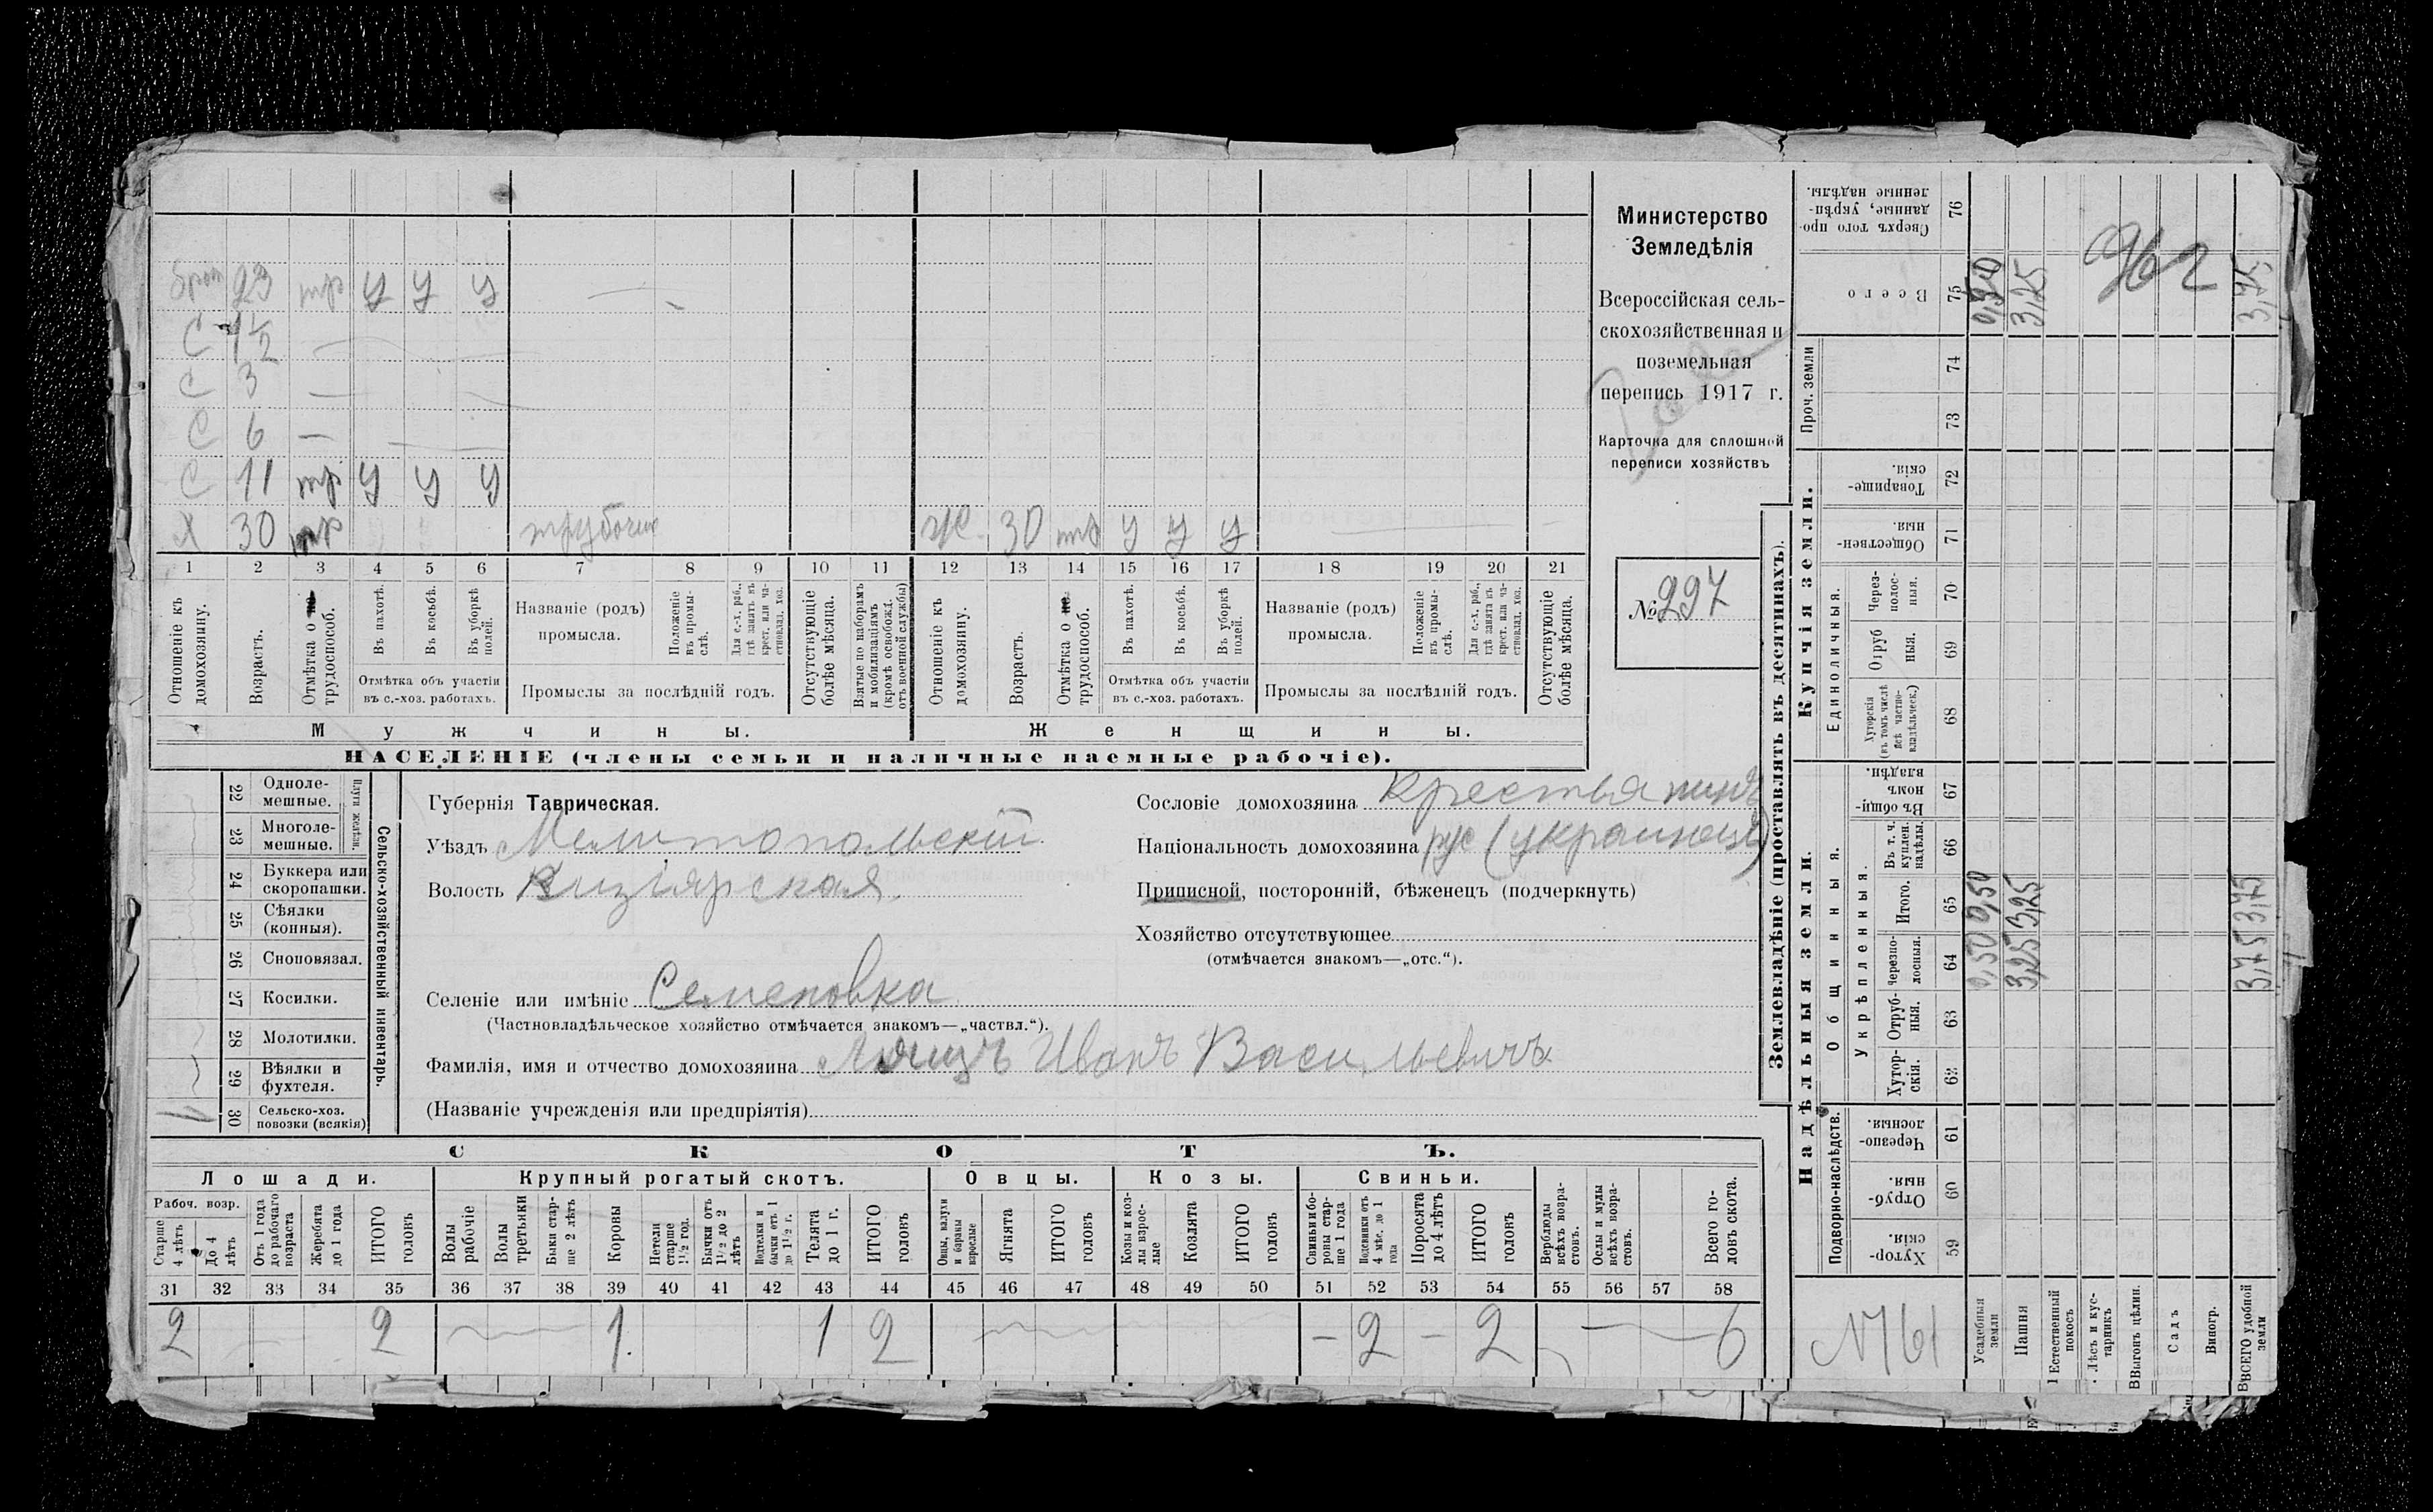 брат 23 тр У У У
С 1½
С 3
С 6
С 11 тр У У У
Х 30 тр
Ж 30 тр У У У
1 2 3 4 5 6 7 8 9 10 11 12 13 14 15 16 17 18 19 20 21
Отношеніе къ домохозяину.
Возрастъ.
Отмѣтка о не трудоспособ.
Въ пахотѣ.
Въ косьбѣ.
Въ уборкѣ полей.
Отмѣтка объ участіи въ с.-хоз. работахъ.
Названіе (родъ) промысла.
Положеніе въ промыслѣ.
Для с.-х. раб., гдѣ занятъ въ крест. или частновлад. хоз.
Промыслы за послѣдній годъ.
Отсутствующіе болѣе мѣсяца.
Взятые по наборамъ и мобилизаціямъ (кромѣ освобожд. отъ военной службы)
Отношеніе къ домохозяину.
Возрастъ.
Отмѣтка о не трудоспособ.
Въ пахотѣ.
Въ косьбѣ.
Въ уборкѣ полей.
Отмѣтка объ участіи въ с.-хоз. работахъ.
Названіе (родъ) промысла.
Положеніе въ промыслѣ.
Для с.-х. раб., гдѣ занята въ крест. или частновлад. хоз.
Промыслы за послѣдній годъ.
Отсутствующіе болѣе мѣсяца.
Мужчины.
Женщины.
НАСЕЛЕНІЕ (члены семьи и наличные наемные рабочіе).
Министерство
Земледѣлія
Всероссійская сель-
скохозяйственная и
поземельная
перепись 1917 г.
Карточка для сплошной
переписи хозяйствъ
№ 297
22 Одноле-мешные.
23 Многоле-мешные.
Плуги желѣзн.
24 Буккера или скоропашки.
25 Сѣялки (конныя).
26 Сноповязал.
27 Косилки.
28 Молотилки.
29 Вѣялки и фухтеля.
30 Сельско-хоз. повозки (всякія) 1
Сельско-хозяйственный инвентарь.
Губернія Таврическая.
Уѣздъ Мелитопольскій
Волость Кизіярская
Селеніе или имѣніе Семеновка
(Частновладѣльческое хозяйство отмѣчается знакомъ—„частвл.“).
Фамилія, имя и отчество домохозяина Иванъ Васильевичъ
(Названіе учрежденія или предпріятія)
Сословіе домохозяина Крестьянинъ
Національность домохозяина рус (украинецъ)
Приписной, посторонній, бѣженецъ (подчеркнуть)
Хозяйство отсутствующее
(отмѣчается знакомъ—„отс.“).
СКОТЪ.
Лошади. Крупный рогатый скотъ. Овцы. Козы. Свиньи.
Рабоч. возр.
Старше 4 лѣтъ
До 4 лѣтъ
Отъ 1 года до рабочаго возраста
Жеребята до 1 года
ИТОГО головъ
Волы рабочіе
Волы третьяки
Быки старше 2 лѣтъ
Коровы
Нетели старше 1½ год.
Бычки отъ 1½ до 2 лѣтъ
Подтелки и бычки отъ 1 до 1½ г.
Телята до 1 г.
ИТОГО головъ
Овцы, валухи и бараны взрослые
Ягнята
ИТОГО головъ
Козы и козлы взрослые
Козлята
ИТОГО головъ
Свиньи и боровы старше 1 года
Подсвинки отъ 4 мѣс. до 1 года
Поросята до 4 лѣтъ
ИТОГО головъ
Верблюды всѣхъ возрастовъ.
Ослы и мулы всѣхъ возрастовъ.
Всего головъ скота.
31 32 33 34 35 36 37 38 39 40 41 42 43 44 45 46 47 48 49 50 51 52 53 54 55 56 57 58
2 2 1 1 2 – 2 – 2 6
Землевладѣніе (проставлять въ десятинахъ).
Надѣльныя земли.
Купчія земли.
Проч. земли
Подворно-наслѣдств.
Общинныя.
Укрѣпленныя.
Единоличныя.
Сверхъ того проданные, укрѣпленные надѣлы. 76
Всего 75
74
73
Товарищескія. 72
Общественныя. 71
Черезполосныя. 70
Отрубныя. 69
Хуторскія (въ томъ числѣ всѣ частновладѣльческ.) 68
Въ общиномъ владѣн. 67
Въ т. ч. куплен. надѣлы. 66
Итого. 65
Черезполосныя. 64
Отрубныя. 63
Хуторскія. 62
Черезполосныя. 61
Отрубныя. 60
Хуторскія. 59
Усадебныя земли 0,50 0,50 0,50
Пашня 3,25 3,25 3,25
1 Естественный покосъ
Лѣсъ и кустарникъ
Выгонъ цѣлин.
Садъ
Виногр.
ВСЕГО удобной земли 3,75 3,75 3,75
962
№61